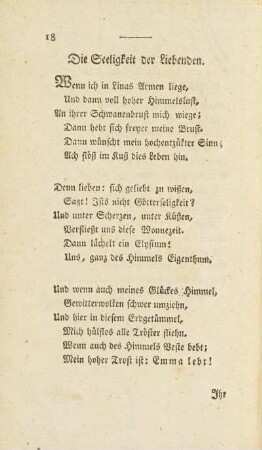 18
Die Seeligkeit der Liebenden.
Wenn ich in Linas Armen liege,
Und dann voll hoher Himmelslust,
An ihrer Schwanenbrust mich wiege;
Dann hebt sich freyer meine Brust.
Dann wünscht mein hochentzükter Sinn;
Ach flöß im Kuß dies Leben hin.
Denn lieben: sich geliebt zu wißen,
Sagt! Ists nicht Götterseligkeit?
Und unter Scherzen, unter Küßen,
Verfließt uns diese Wonnezeit.
Dann lächelt ein Elysium!
Uns, ganz des Himmels Eigenthum.
Und wenn auch meines Glückes Himmel,
Gewitterwolken schwer umziehn,
Und hier in diesem Erdgetümmel,
Mich hülflos alle Tröster fliehn.
Wenn auch des Himmels Veste bebt;
Mein hoher Trost ist: Emma lebt!
Ihr